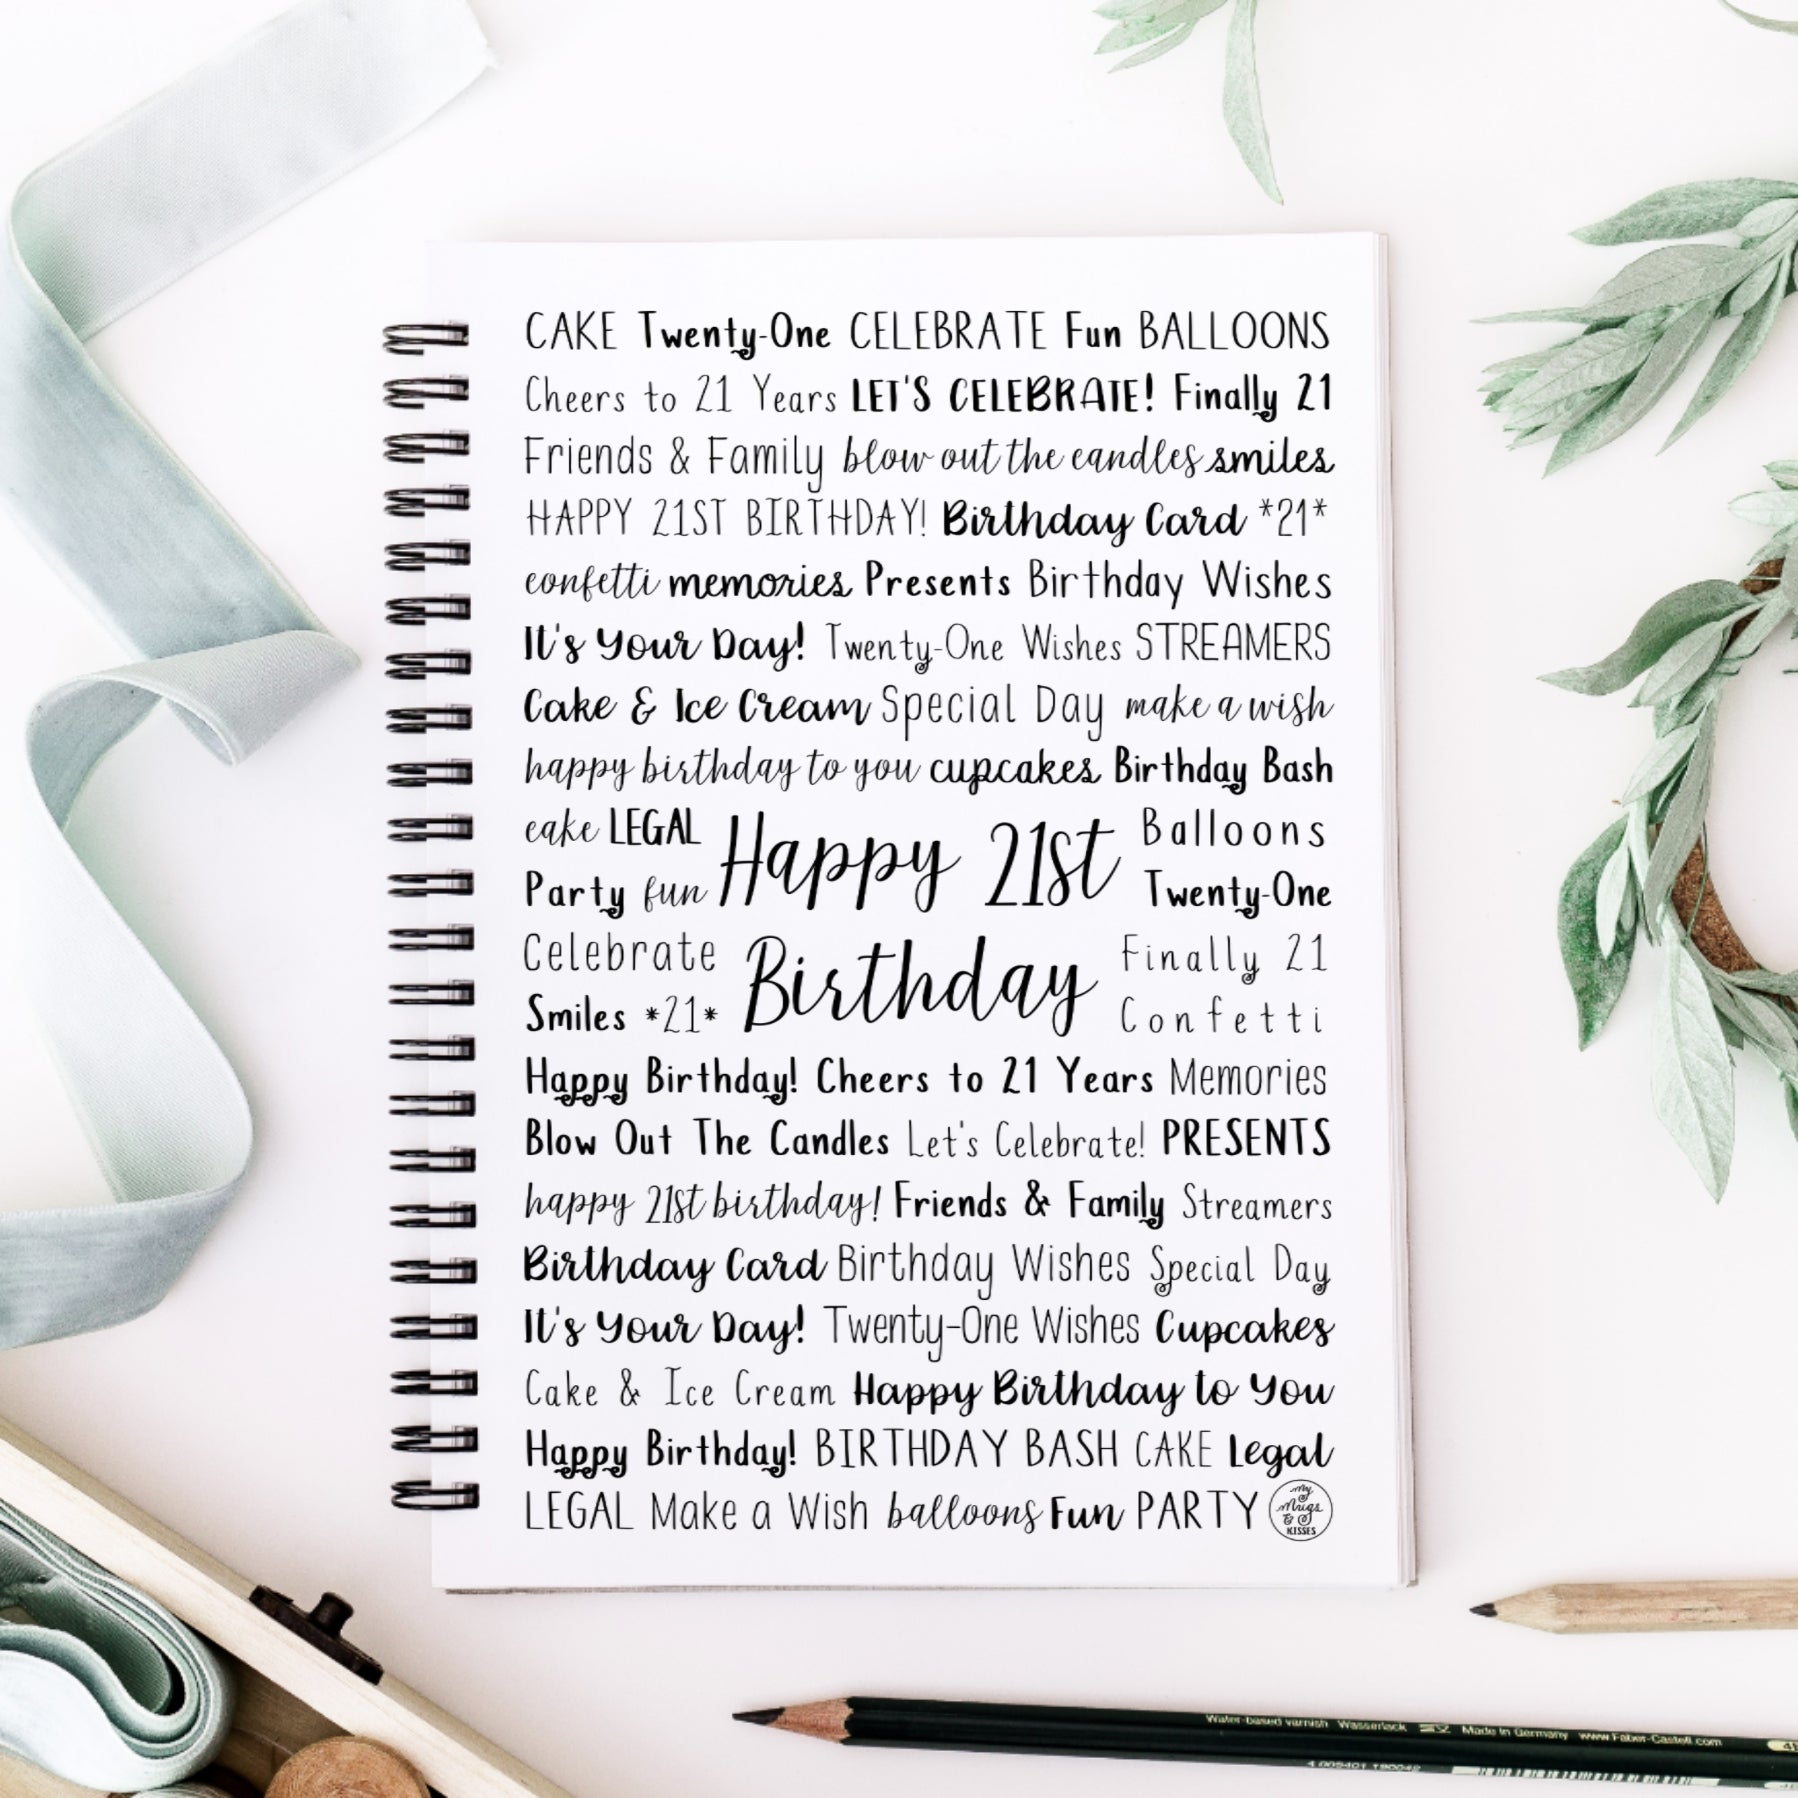 CAKE Twenty-One CELEBRATE Fun BALLOONS
Cheers to 21 Years LET'S CELEBRATE! Finally 21
Friends & Family blow out the candles smiles
HAPPY 21ST BIRTHDAY! Birthday Card *21*
confetti memories Presents Birthday Wishes
It's Your Day! Twenty-One Wishes STREAMERS
Cake & Ice Cream Special Day make a wish
happy birthday to you cupcakes Birthday Bash
cake LEGAL
Party fun
Happy 21st
Balloons
Twenty-One
Celebrate
Smiles *21*
Birthday
Finally 21
Confetti
Happy Birthday! Cheers to 21 Years Memories
Blow Out The Candles Let's Celebrate! PRESENTS
happy 21st birthday! Friends & Family Streamers
Birthday Card Birthday Wishes Special Day
It's Your Day! Twenty-One Wishes Cupcakes
Cake & Ice Cream Happy Birthday to You
Happy Birthday! BIRTHDAY BASH CAKE Legal
LEGAL Make a Wish balloons Fun PARTY
My
Mugs
&
KISSES
Water-based varnish Wasserlack Made in Germany www.Faber-Castell.com
4 005401 190042